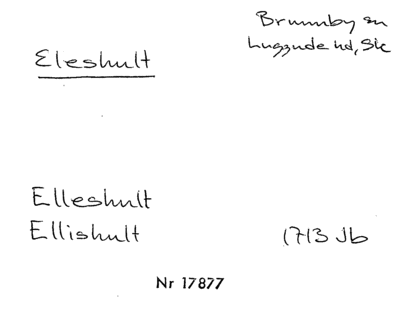 Eleshult
Brunnby sn
Luggude hd, Sk
Elleshult
Ellishult 1713 Jb
Nr 17877